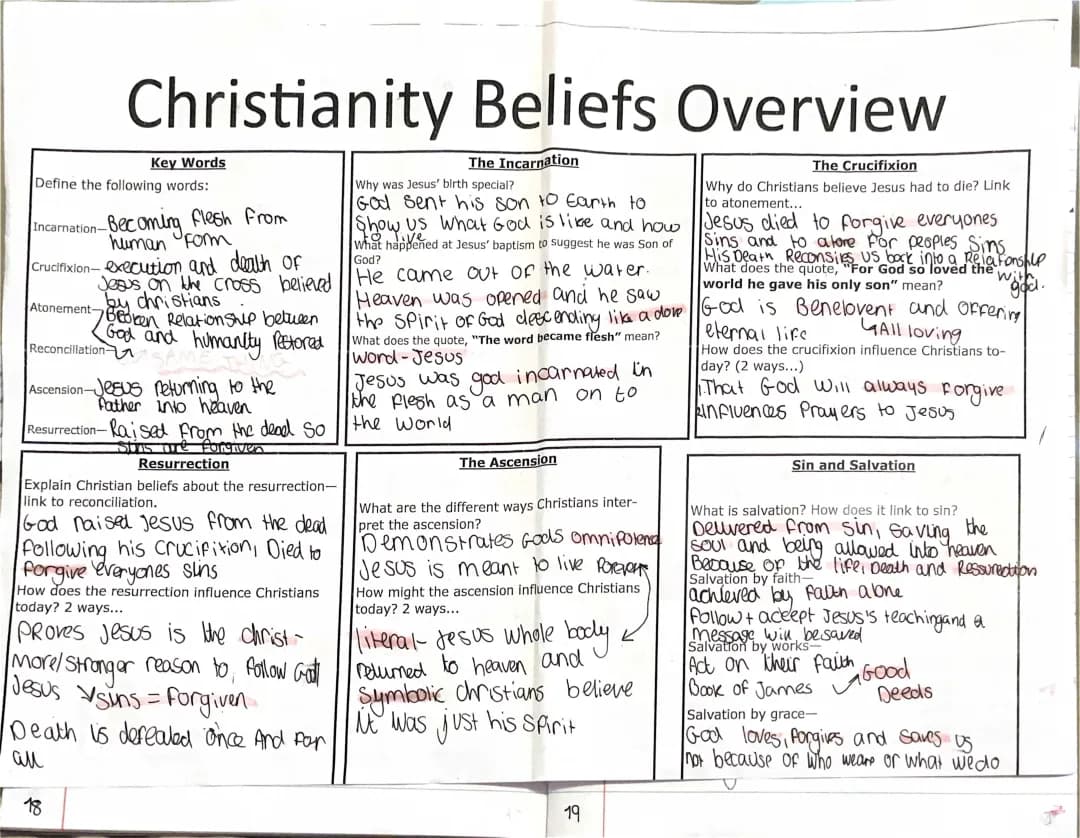 Christianity Beliefs Overview
Key Words
Define the following words:
Incarnation- Becoming flesh from
human form
Crucifixion- execution and death of
Jesus on the cross believed
by christians.
Atonement- Broken Relationship between
God and humanity restored
Reconciliation-
SAME THING
Ascension- Jesus returning to the
Father into heaven
Resurrection- Raised from the dead so
sins are forgiven
The Incarnation
Why was Jesus' birth special?
God sent his son to Earth to
show us what God is like and how
to live
What happened at Jesus' baptism to suggest he was Son of
God?
He came out of the water.
Heaven was opened and he saw
the spirit of God descending like a dove
What does the quote, "The word became flesh" mean?
word-Jesus
Jesus was god incarnated in
the flesh as a man on to
the world
The Crucifixion
Why do Christians believe Jesus had to die? Link
to atonement...
Jesus died to forgive everyones
sins and to atone for peoples sins
His Death Reconsiles us back into a Relationship
with god.
What does the quote, "For God so loved the
world he gave his only son" mean?
God is Benelovent and offering
eternal life All loving
How does the crucifixion influence Christians to-
day? (2 ways...)
1.That God will always forgive
2Influences Prayers to Jesus
Resurrection
Explain Christian beliefs about the resurrection—
link to reconciliation.
God raised Jesus from the dead
following his crucifixion, Died to
forgive everyones sins
How does the resurrection influence Christians
today? 2 ways...
Proves Jesus is the christ-
More/stronger reason to follow God
Jesus sins = forgiven
Death is defeated once And for
all
The Ascension
What are the different ways Christians inter-
pret the ascension?
Demonstrates Gods omnipotence
Jesus is meant to live forever
How might the ascension influence Christians
today? 2 ways...
literal- Jesus whole body
returned to heaven and
Symbolic christians believe
it was just his spirit
Sin and Salvation
What is salvation? How does it link to sin?
Delivered from sin, saving the
soul and being allowed into heaven
Because of the life, Death and Resurrection
Salvation by faith—
achieved by faith alone
follow + accept Jesus's teaching and a
message will be saved
Salvation by works—
Act on their faith Good
Book of James Deeds
Salvation by grace—
God loves, forgives and saves us
not because of who we are or what we do
18
19